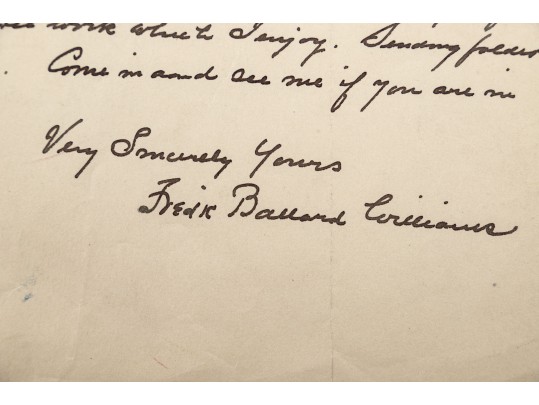 work which I enjoy. Sending folder
. Come in and see me if you are in
Very Sincerely Yours
Fredk Ballard Williams